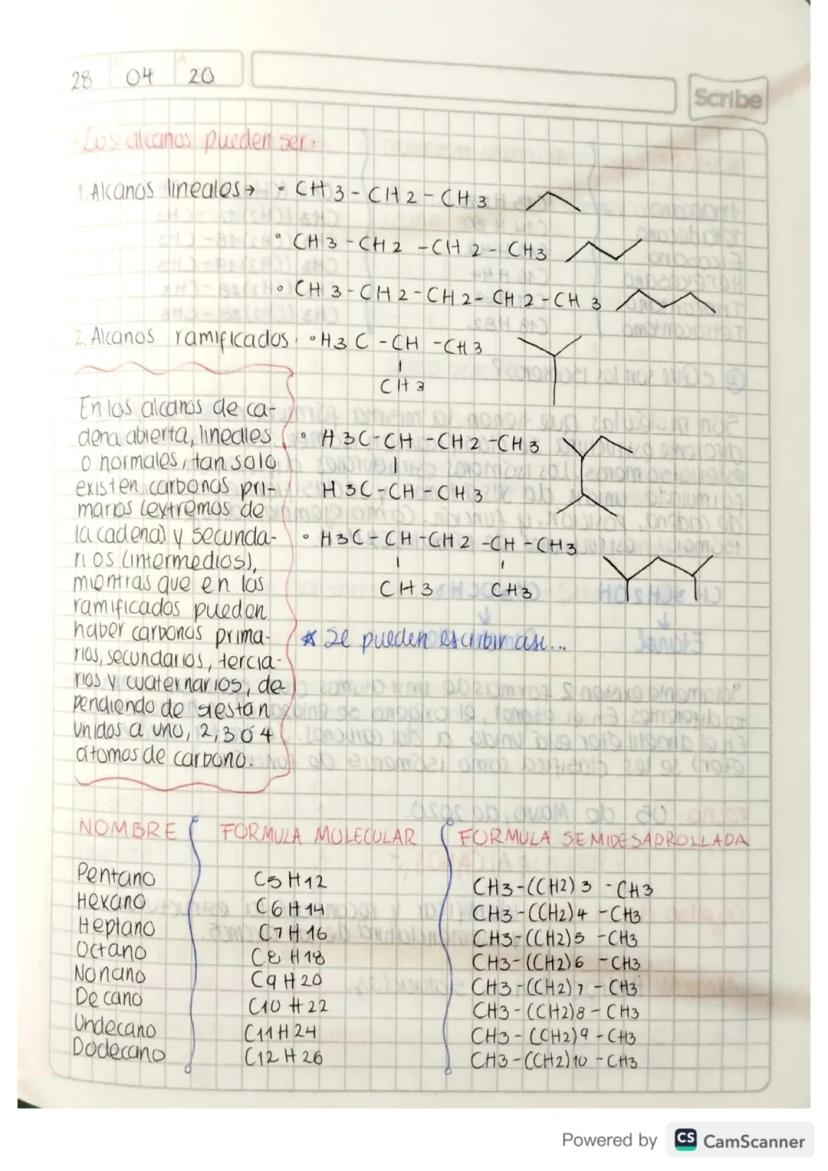 28 04 20
Scribe
Los alcanos pueden ser:
1. Alcanos lineales → • CH3-CH2-CH3
• CH3-CH2-CH2-CH3
• CH3-CH2-CH2-CH2-CH3
2. Alcanos ramificados. • H3C-CH-CH3
CH3
• H3C-CH-CH2-CH3
H3C-CH-CH3
• H3C-CH-CH2-CH-CH3
CH3 CH3
* Se pueden escribir así...
En los alcanos de ca-
dena abierta, lineales
o normales, tan solo
existen carbonos pri-
marios (extremos de
la cadena) y secunda-
rios (intermedios),
mientras que en los
ramificados pueden
haber carbonos prima-
rios, secundarios, tercia-
rios y cuaternarios, de-
pendiendo de si están
unidos a uno, 2, 3 o 4
átomos de carbono.
NOMBRE FORMULA MOLECULAR FORMULA SEMIDESADROLLADA
Pentano C5H12 CH3-((CH2)3-CH3
Hexano C6H14 CH3-((CH2)4-CH3
Heptano C7H16 CH3-((CH2)5-CH3
Octano C8H18 CH3-((CH2)6-CH3
Nonano C9H20 CH3-((CH2)7-CH3
Decano C10H22 CH3-((CH2)8-CH3
Undecano C11H24 CH3-((CH2)9-CH3
Dodecano C12H26 CH3-((CH2)10-CH3
Powered by CS CamScanner